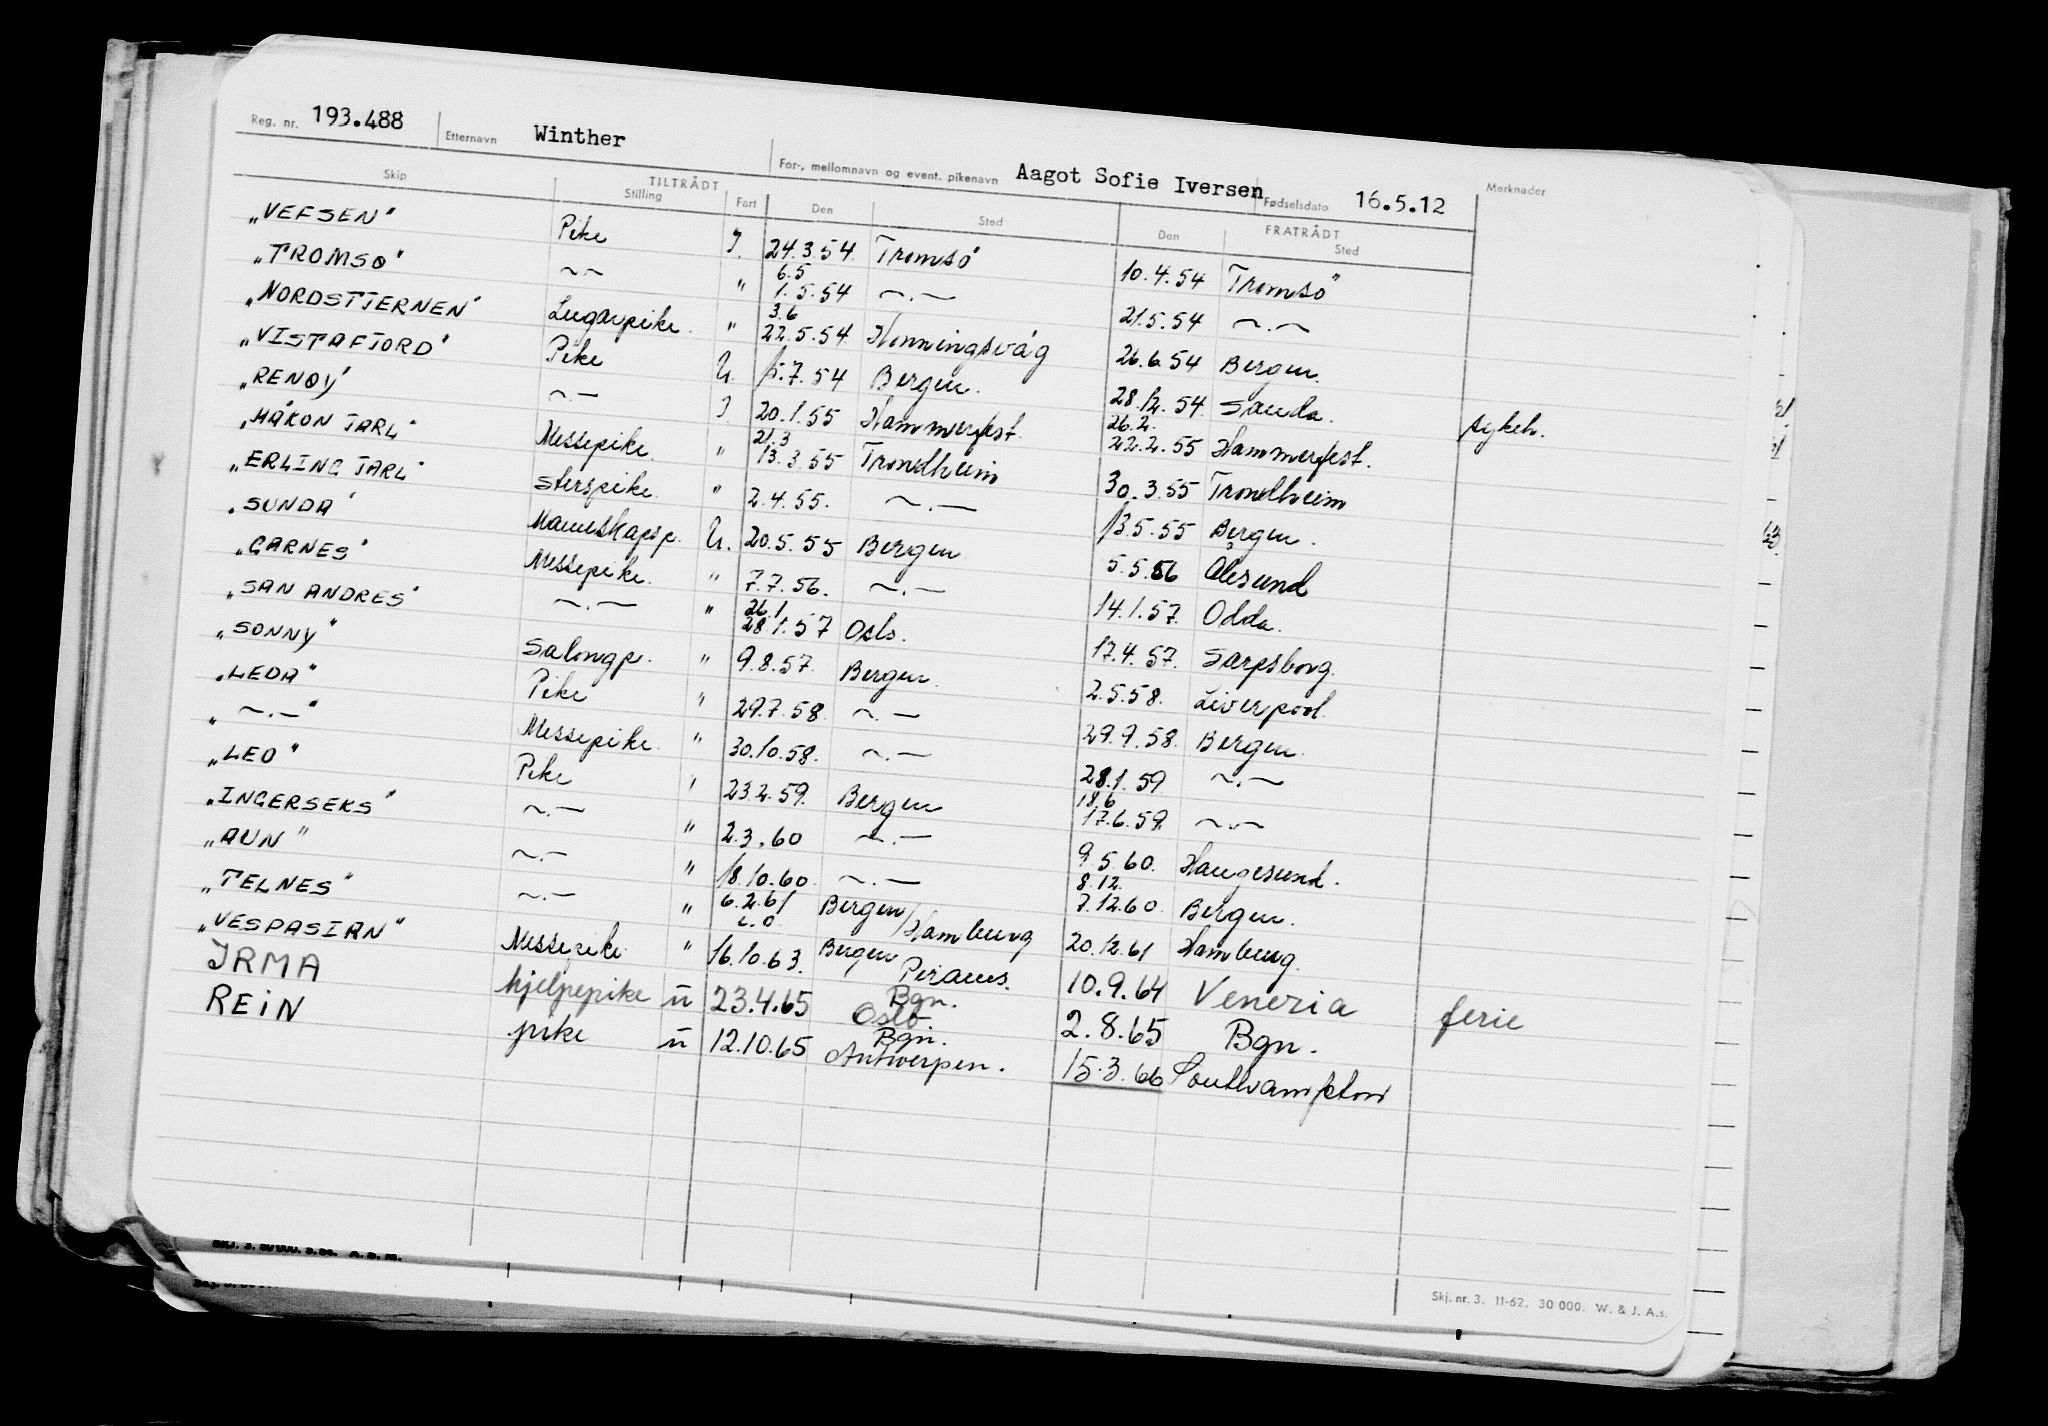 Reg. nr. 193.488 Etternavn Winther For-, mellomnavn og event. pikenavn Aagot Sofie Iversen Fødselsdato 16.5.12 Merknader
Skip TILTRÅDT Stilling Fart Den Sted FRATRÅDT Den Sted
"VEFSEN" Pike I. 24.3.54. Tromsö 10.4.54 Tromsö
"TROMSØ" ~~ " 6.5 1.5.54 ~.— 21.5.54 ~.~
"NORDSTJERNEN" Lugarpike. " 3.6 22.5.54 Honningsvåg 26.6.54 Bergen.
"VISTAFJORD" Pike U. 15.7.54 Bergen. 28.12.54. Sauda. sykeh.
"RENØY" ~.— I 20.1.55 Hammerfest. 26.2. 22.2.55 Hammerfest.
"HÅKON JARL" Messepike. " 21.3 13.3.55 Trondheim 30.3.55 Trondheim
"ERLING JARL" Sterspike. " 2.4.55. ~.— 13.5.55 Bergen.
"SUNDA" Mannskapsp. U. 20.5.55 Bergen 5.5.56 Ålesund
"GARNES" Messepike. " 7.7.56. ~.— 14.1.57. Odda.
"SAN ANDRES" ~.— " 26.1 28.1.57 Oslo. 17.4.57. Sarpsborg.
"SONNY" Salongp. " 9.8.57. Bergen. 2.5.58. Liverpool.
"LEDA" Pike " 29.7.58. ~.— 29.9.58. Bergen.
" ~.— " Messepike. " 30.10.58. ~.— 28.1.59 ~.—
"LEO" Pike " 23.2.59. Bergen 18.6 17.6.59. ~.~
"INGERSEKS" ~.— " 2.3.60 ~.— 9.5.60. Haugesund.
"AUN" ~.— " 18.10.60. ~.— 8.12. 7.12.60. Bergen.
"TELNES" ~.— " 6.2.61 Bergen/Hamburg 20.12.61 Hamburg.
"VESPASIAN" Messepike. " 16.10.63. Bergen Piraeus. 10.9.64 Venezia ferie
IRMA hjelpepike u 23.4.65 Bgn. Oslo. 2.8.65 Bgn.
REIN pike u 12.10.65 Bgn. Antwerpen. 15.3.66 Southampton
Skj. nr. 3. 11-62. 30 000. W. & J. A.s.